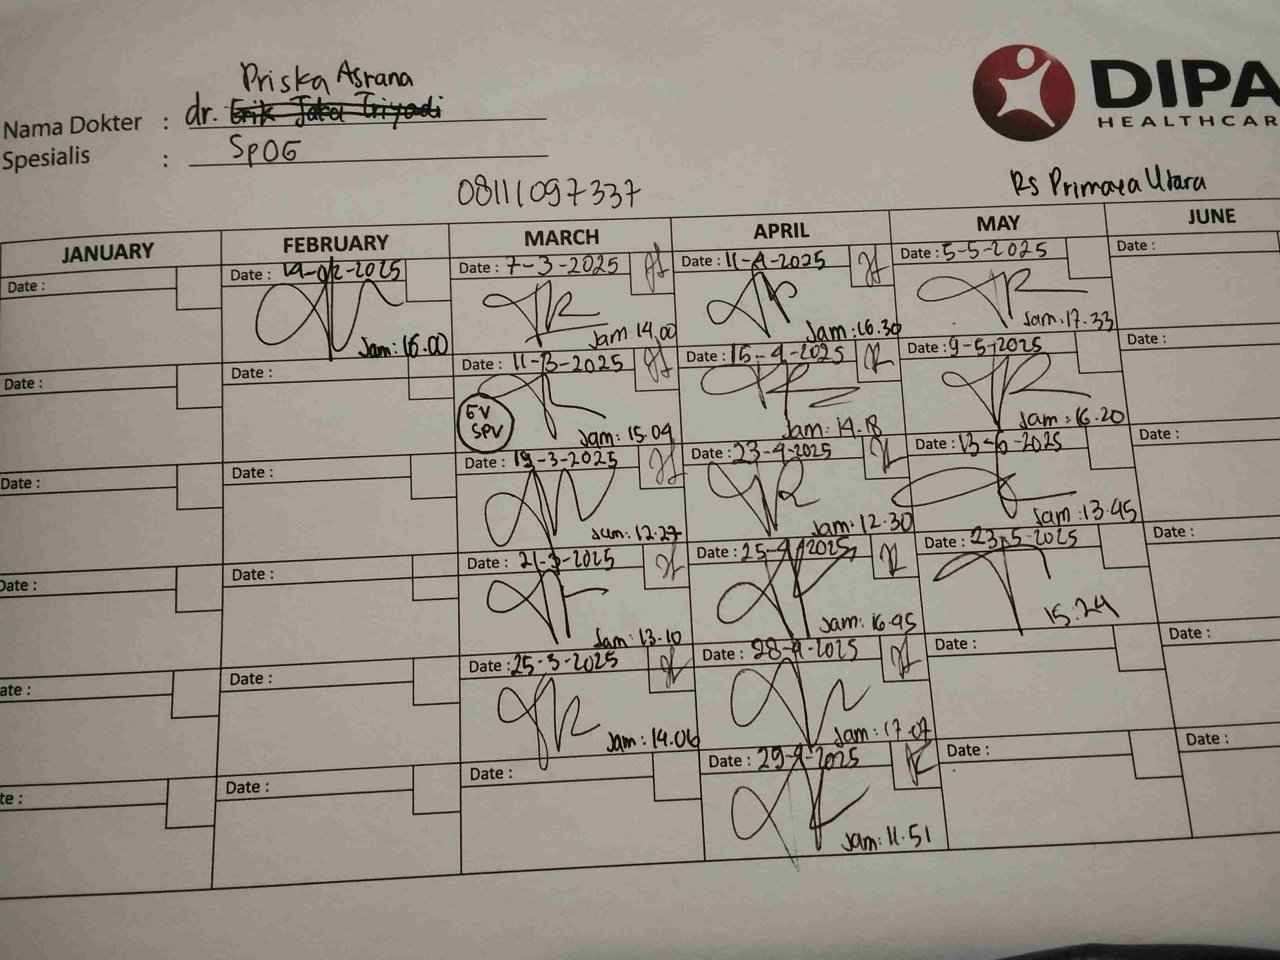 Priska Asrana
Nama Dokter : dr. Erik Jaka Triyadi
Spesialis : SpOG
DIPA
HEALTHCAR
08111097337
RS Primaya Utara
JANUARY FEBRUARY MARCH APRIL MAY JUNE
Date : Date : 19-02-2025 Date : 7-3-2025 Date : 11-4-2025 Date : 5-5-2025 Date :
Jam: 16.00 Jam 14.00 Jam: 16.30 Jam: 17.33
Date : Date : Date : 11-3-2025 Date : 15-4-2025 Date : 9-5-2025 Date :
EV
SPV
Jam: 15.04 Jam: 14.18 Jam: 16.20
Date : Date : Date : 19-3-2025 Date : 23-4-2025 Date : 13-5-2025 Date :
Jam: 12.27 Jam: 12.30 Jam: 13.45
Date : Date : Date : 21-3-2025 Date : 25-4-2025 Date : 23-5-2025 Date :
Jam: 13.10 Jam: 16.45 15.24
ate : Date : Date : 25-3-2025 Date : 28-4-2025 Date : Date :
Jam: 14.06 Jam: 17.07
te : Date : Date : Date : 29-4-2025 Date : Date :
Jam: 11.51